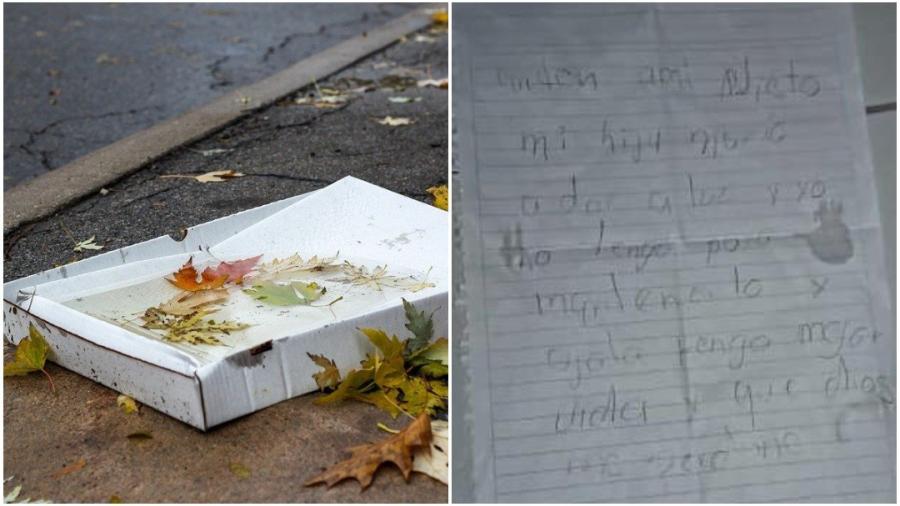 cuiden ami Nieto
mi hija murió
a dar a luz y yo
no tengo para
mantenerlo y
ojala tenga mejor
vida y que dios
me